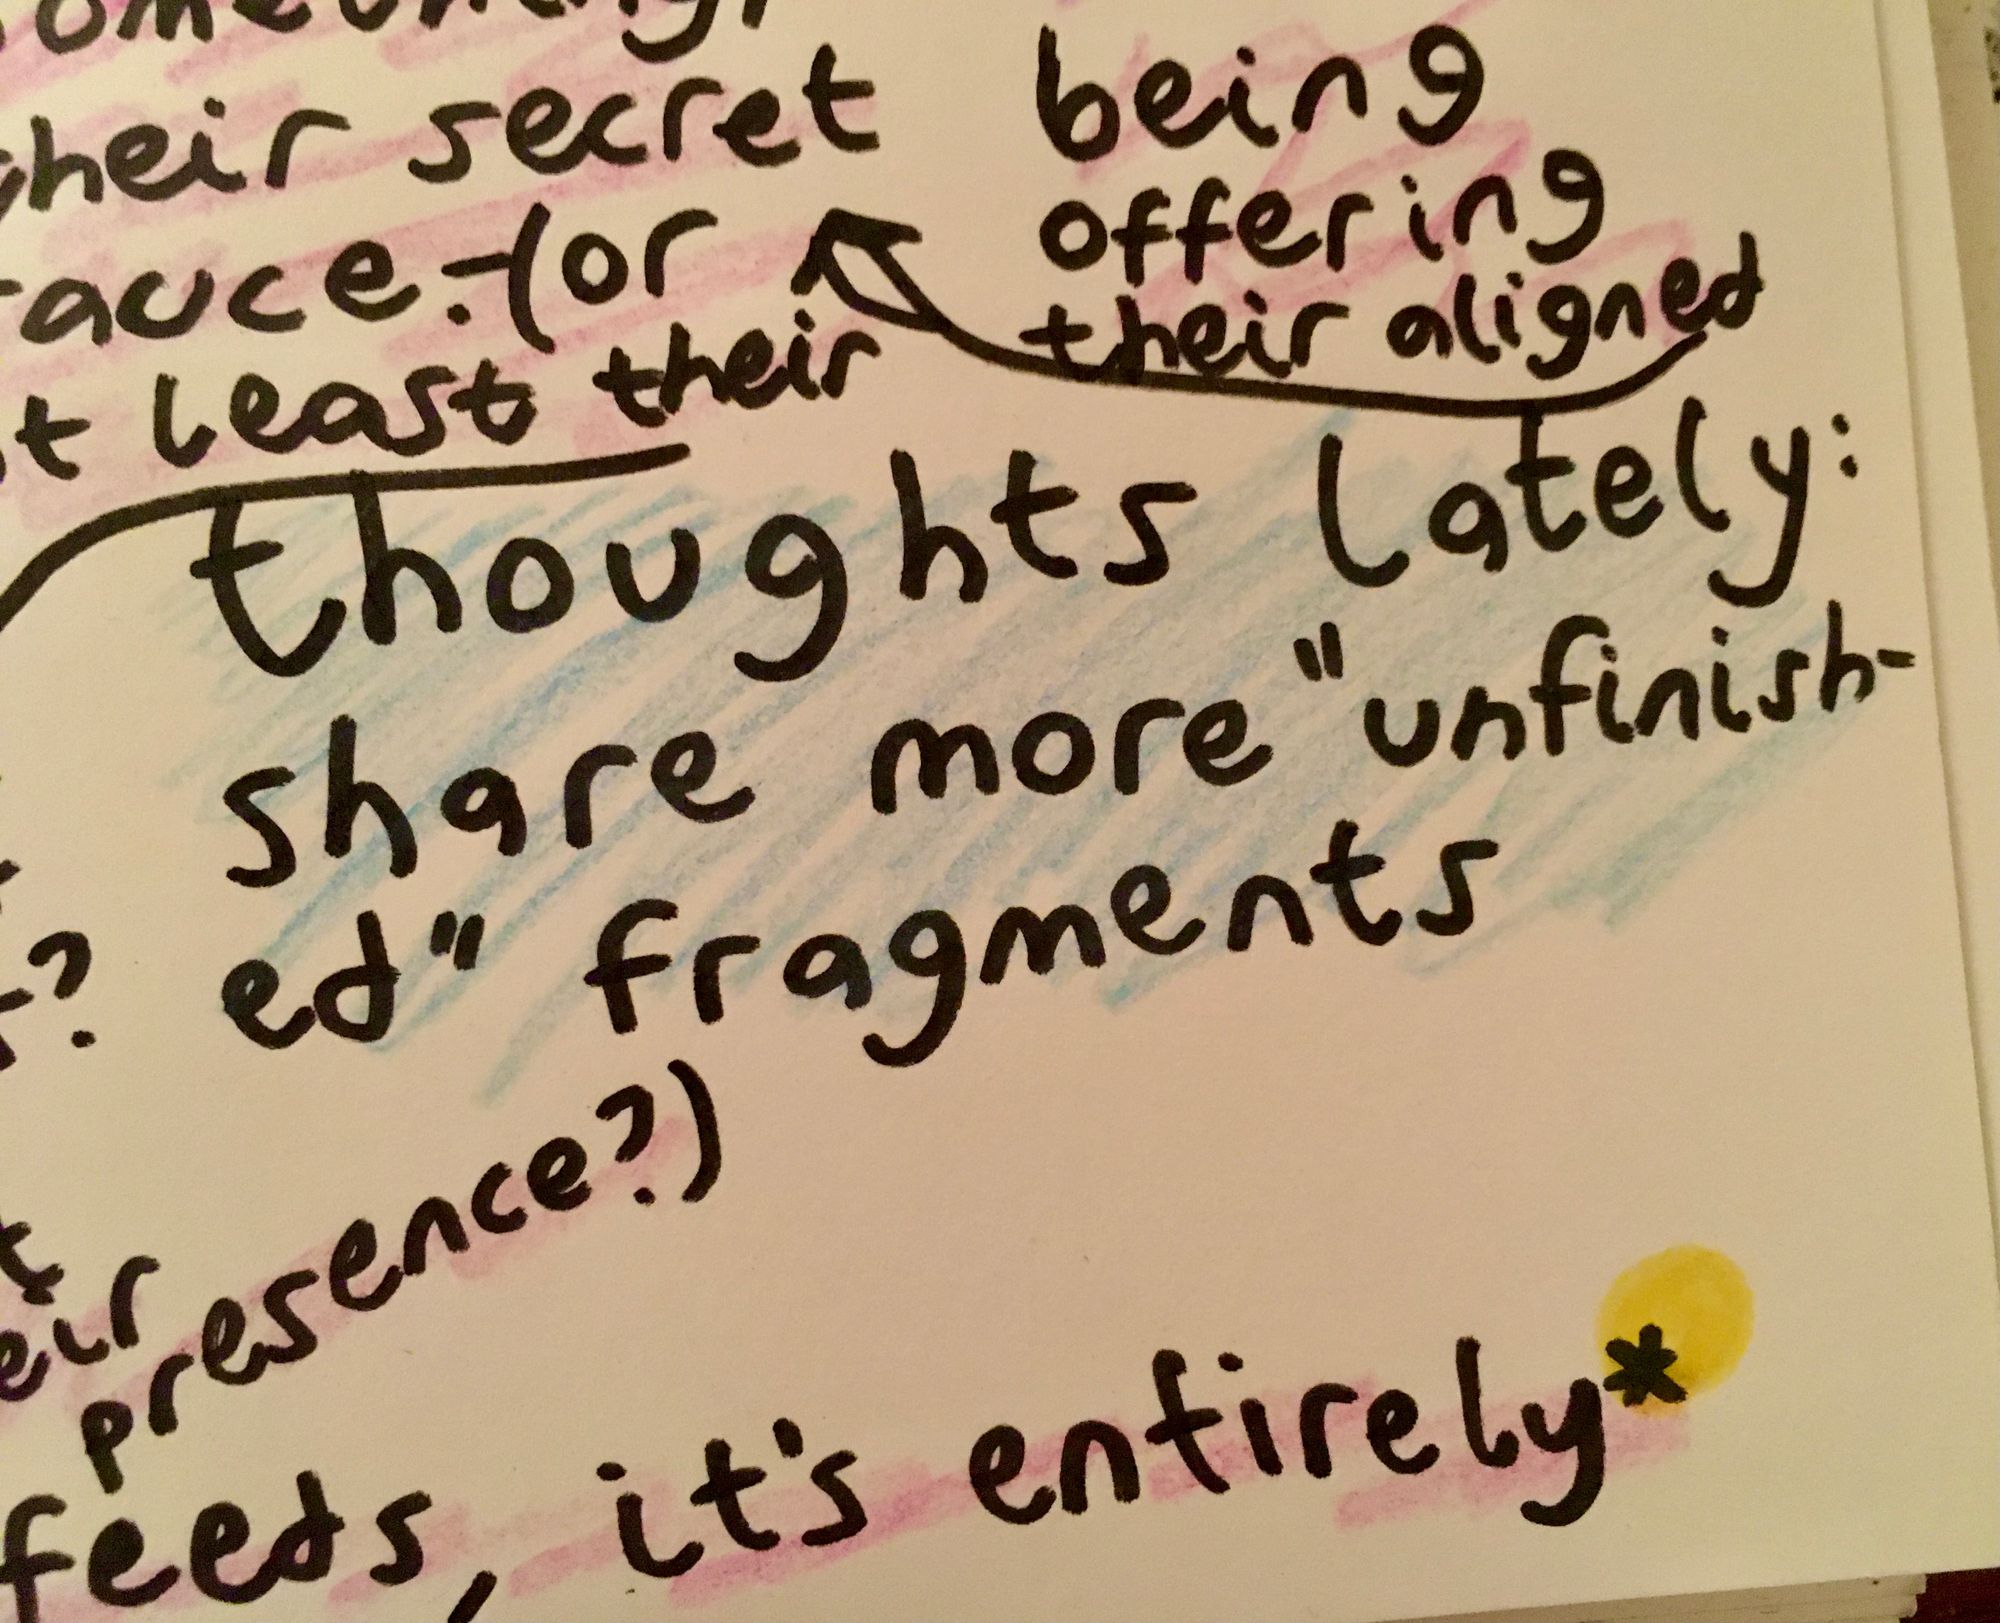 their secret
sauce. (or
at least their
being
offering
their aligned
thoughts lately:
share more "unfinish-
ed" fragments
?
presence?)
feeds, it's entirely*